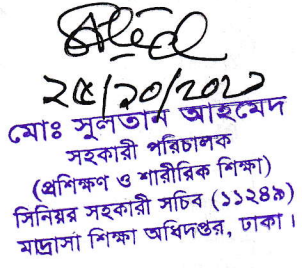 ২৫/১০/২০২০
মোঃ সুলতান আহমেদ
সহকারী পরিচালক
(প্রশিক্ষণ ও শারীরিক শিক্ষা)
সিনিয়র সহকারী সচিব (১১২৪৯)
মাদ্রাসা শিক্ষা অধিদপ্তর, ঢাকা।